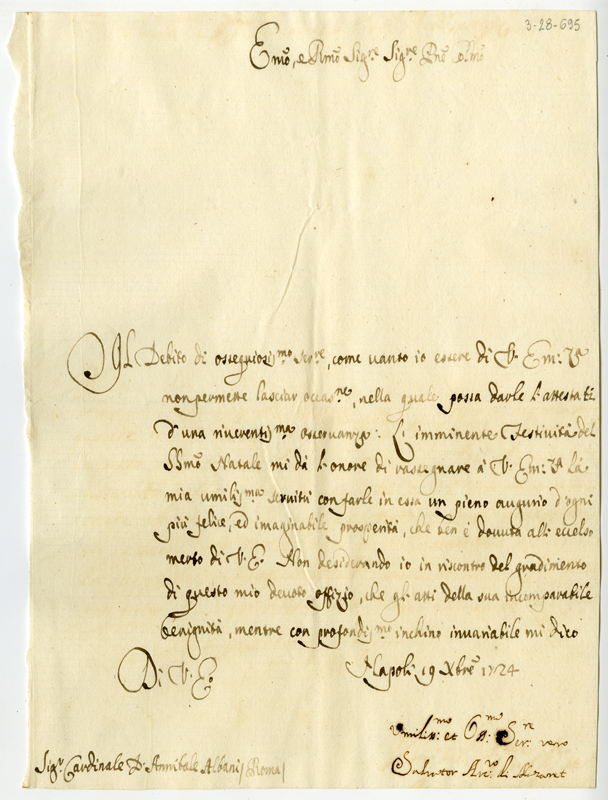 3-28-695
Emo, e Rmo Sigre Sigre Pne Colmo
Il Debito di ossequiosismo serre, come vanto io essere di V. Em: Va
non permette lasciar occasne, nella quale possa darle l'attestati
d'una riverentisma osservanza. L'imminente Festività del
SSmo Natale mi dà l'onore di rassegnare à V. Em: Va la
mia umilisma servitù con farle in essa un pieno augurio d'ogni
più felice, ed imaginabile prosperità, che ben è dovuta all'eccelso
merto di V. E. Non desiderando io in riscontro del gradimento
di questo mio devoto offizio, che gl'atti della sua incomparabile
benignità, mentre con profondismo inchino invariabile mi dico
Di V. E.
Napoli 19 Xbre 1724
Umiliss:mo et Ob:mo Serre vero
Salvator Arc.o di
Sigr Cardinale D. Annibale Albani / Roma /